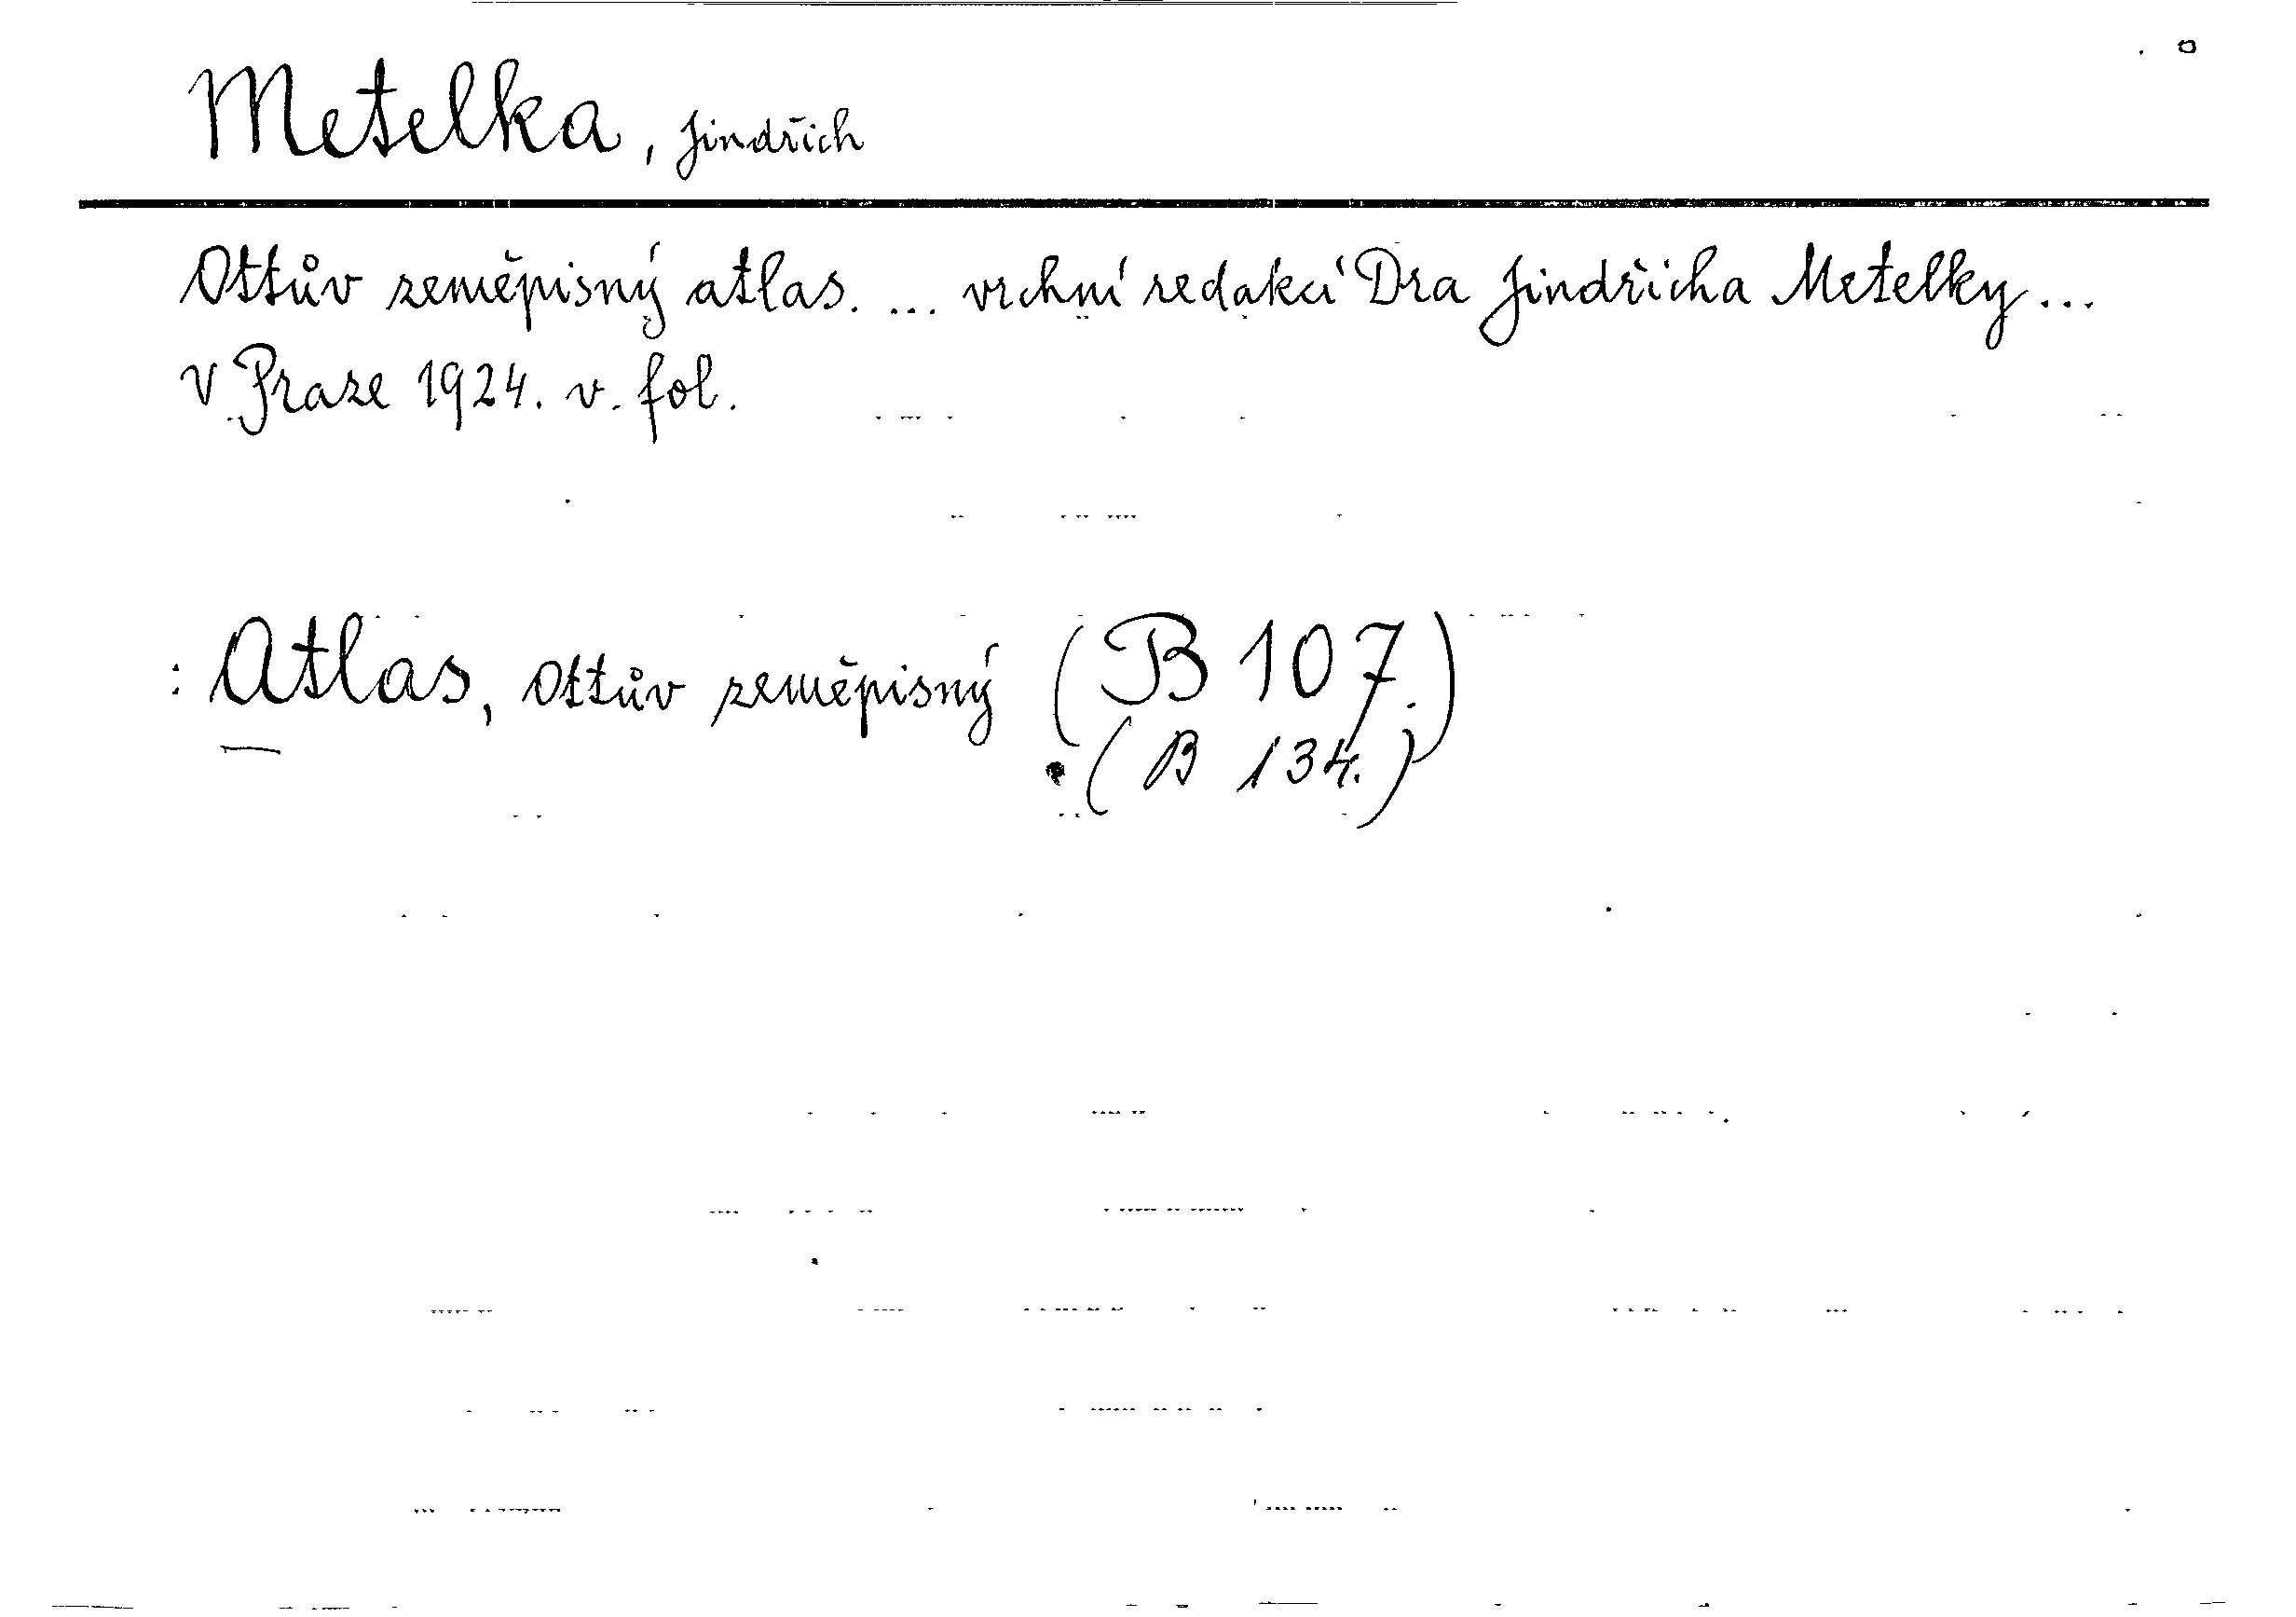 Metelka, Jindřich
Ottův zeměpisný atlas. ... vrchní redakcí Dra Jindřicha Metelky...
V Praze 1924. v. fol.
: Atlas, Ottův zeměpisný (B 107.)
(B 134.)